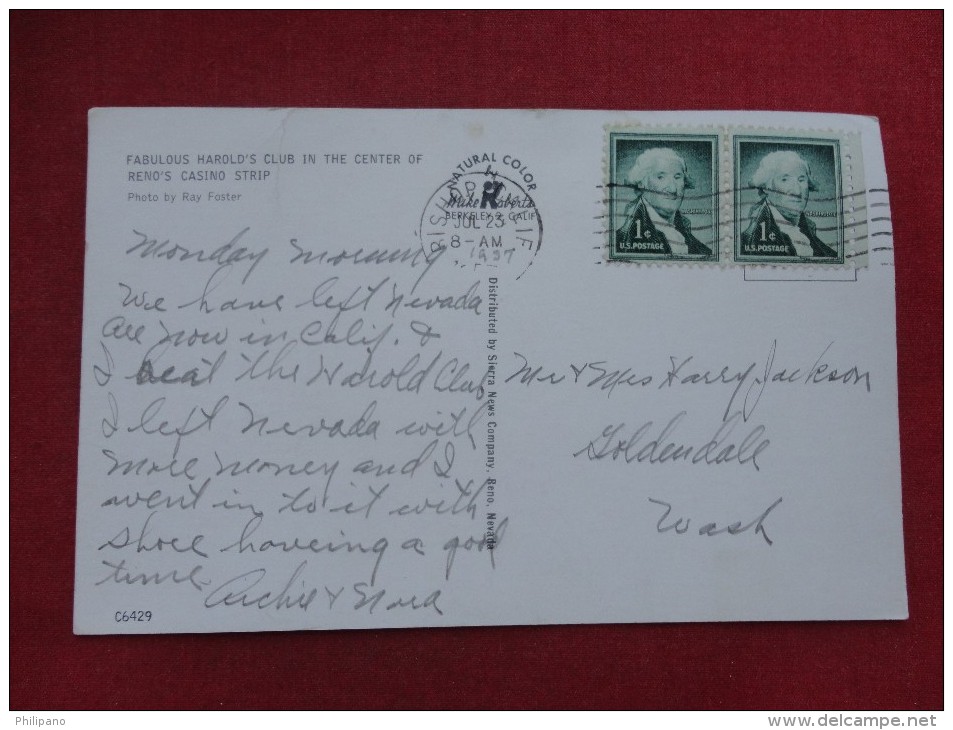 FABULOUS HAROLD'S CLUB IN THE CENTER OF
RENO'S CASINO STRIP
Photo by Ray Foster
NATURAL COLOR
Mike Roberts
BERKELEY 2, CALIF
BISHOP CALIF
JUL 23
8-AM
1957
1¢
U.S. POSTAGE
WASHINGTON
1¢
U.S. POSTAGE
WASHINGTON
Monday Morning
We have left Nevada
are now in Calif. &
I beat the Harold Club
I left Nevada with
more money and I
went in to it with
shore haveing a good
time.
Archie & Nora
Distributed by Sierra News Company, Reno, Nevada
Mr & Mrs Harry Jackson
Goldendale
Wash
C6429
Philipano
www.delcampe.net